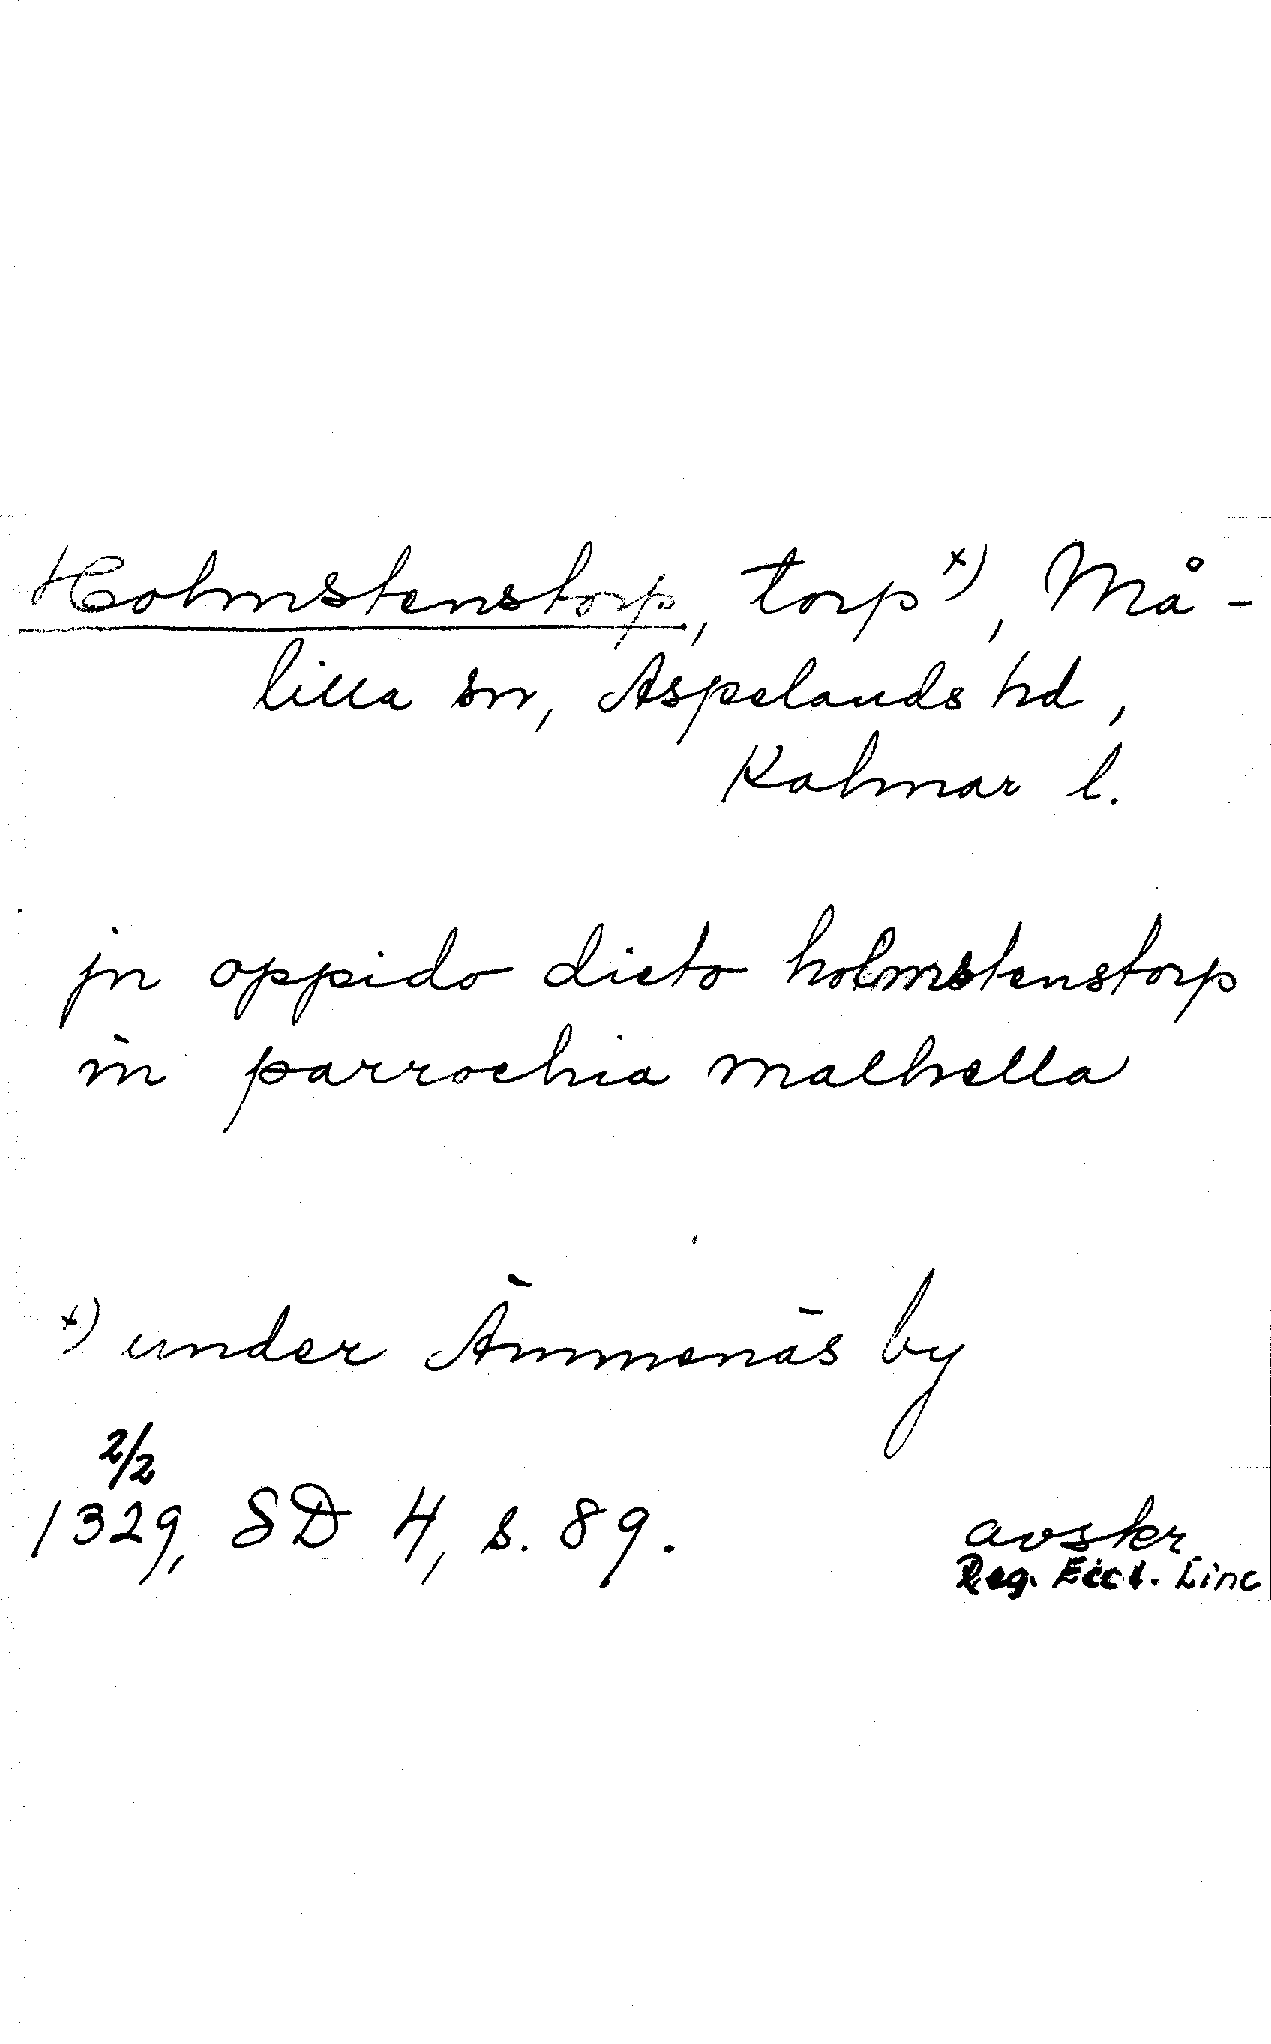 Holmstenstorp, torp x), Må-
lilla sn, Aspelands hd,
Kalmar l.
jn oppido dicto holmstenstorp
in parrochia malhella
x) under Ämmenäs by
2/2
1329, SD 4, s. 89.
avskr
Reg. Eccl. Linc